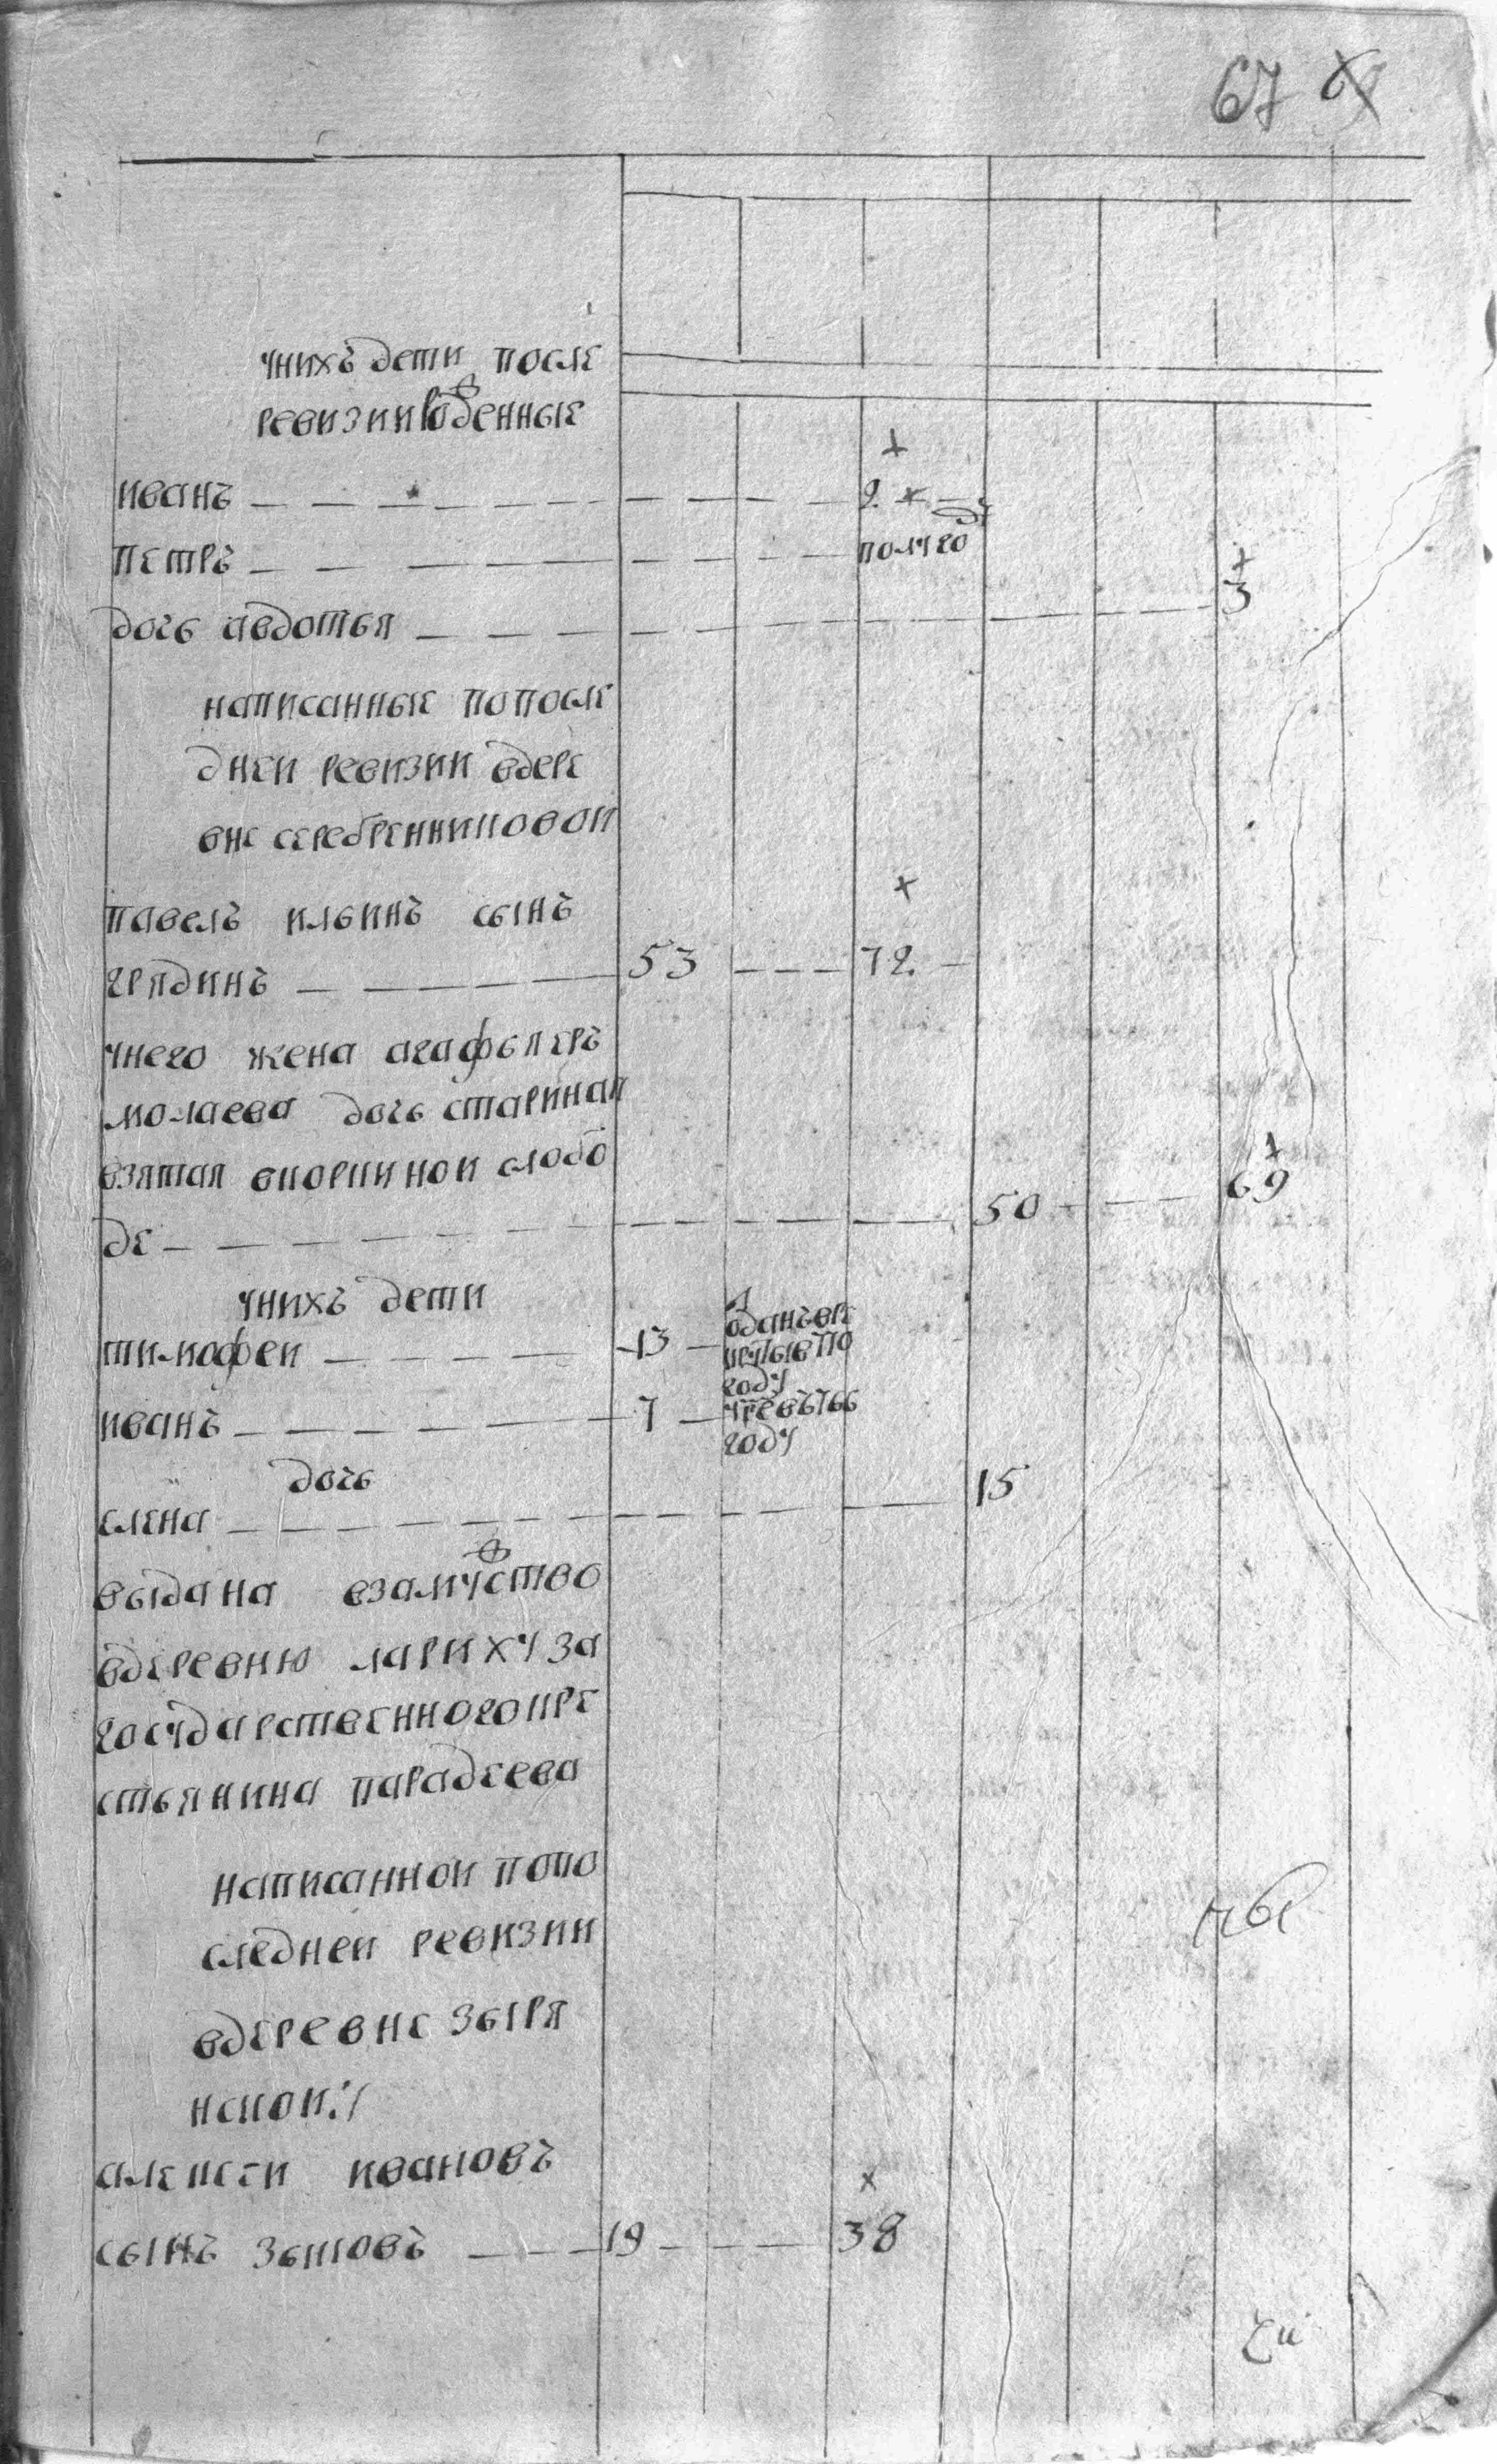 67
унихъ дети после
ревизии роденные
иванъ — — — 2
петръ — — — полуго
дочь авдотья — — — 3
написанные попосле
днеи ревизии вдере
вне серебренниковои
павелъ ильинъ сынъ
грядинъ — — — 53 — — — 72
унего жена агафья ер
молаева дочь старинная
взятая вкоркинои слобо
де — — — 50 — — — 69
унихъ дети
тимофеи — — — 13 — отданъ вре
круты в 770
году
иванъ — — — 7 — умре въ 1766
году
дочь
елена — — — 15
выдана взамуство
вдеревню лариху за
государственного кре
стьянина парадеева
написаннои попо
следнеи ревизии
вдеревне зыря
нскои
алексеи ивановъ
сынъ зыковъ — — — 19 — — — 38